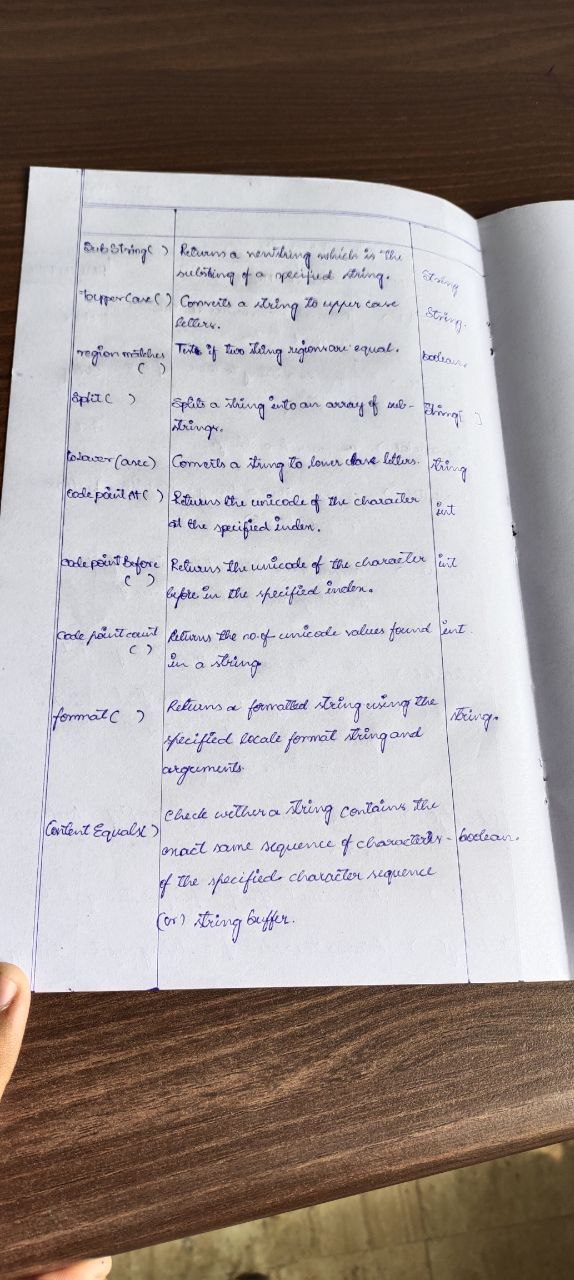 SubString( ) Returns a newstring which is the
substing of a specified string. String
toupperCase( ) Converts a string to upper case
letters. String.
region matches Tests if two string regions are equal. boolean.
( )
Split( ) Splits a string into an array of sub- String[ ]
strings.
toLower(case) Converts a string to lower case letters. string
code point At( ) Returns the unicode of the character int
at the specified index.
code point Before Returns the unicode of the character int
( ) before in the specified index.
Code point count Returns the no. of unicode values found int.
( ) in a string
format( ) Returns a formatted string using the string.
specified locale format string and
arguments.
Content Equals( ) Check wether a string contains the
exact same sequence of characters - boolean.
of the specified character sequence
(or) string buffer.